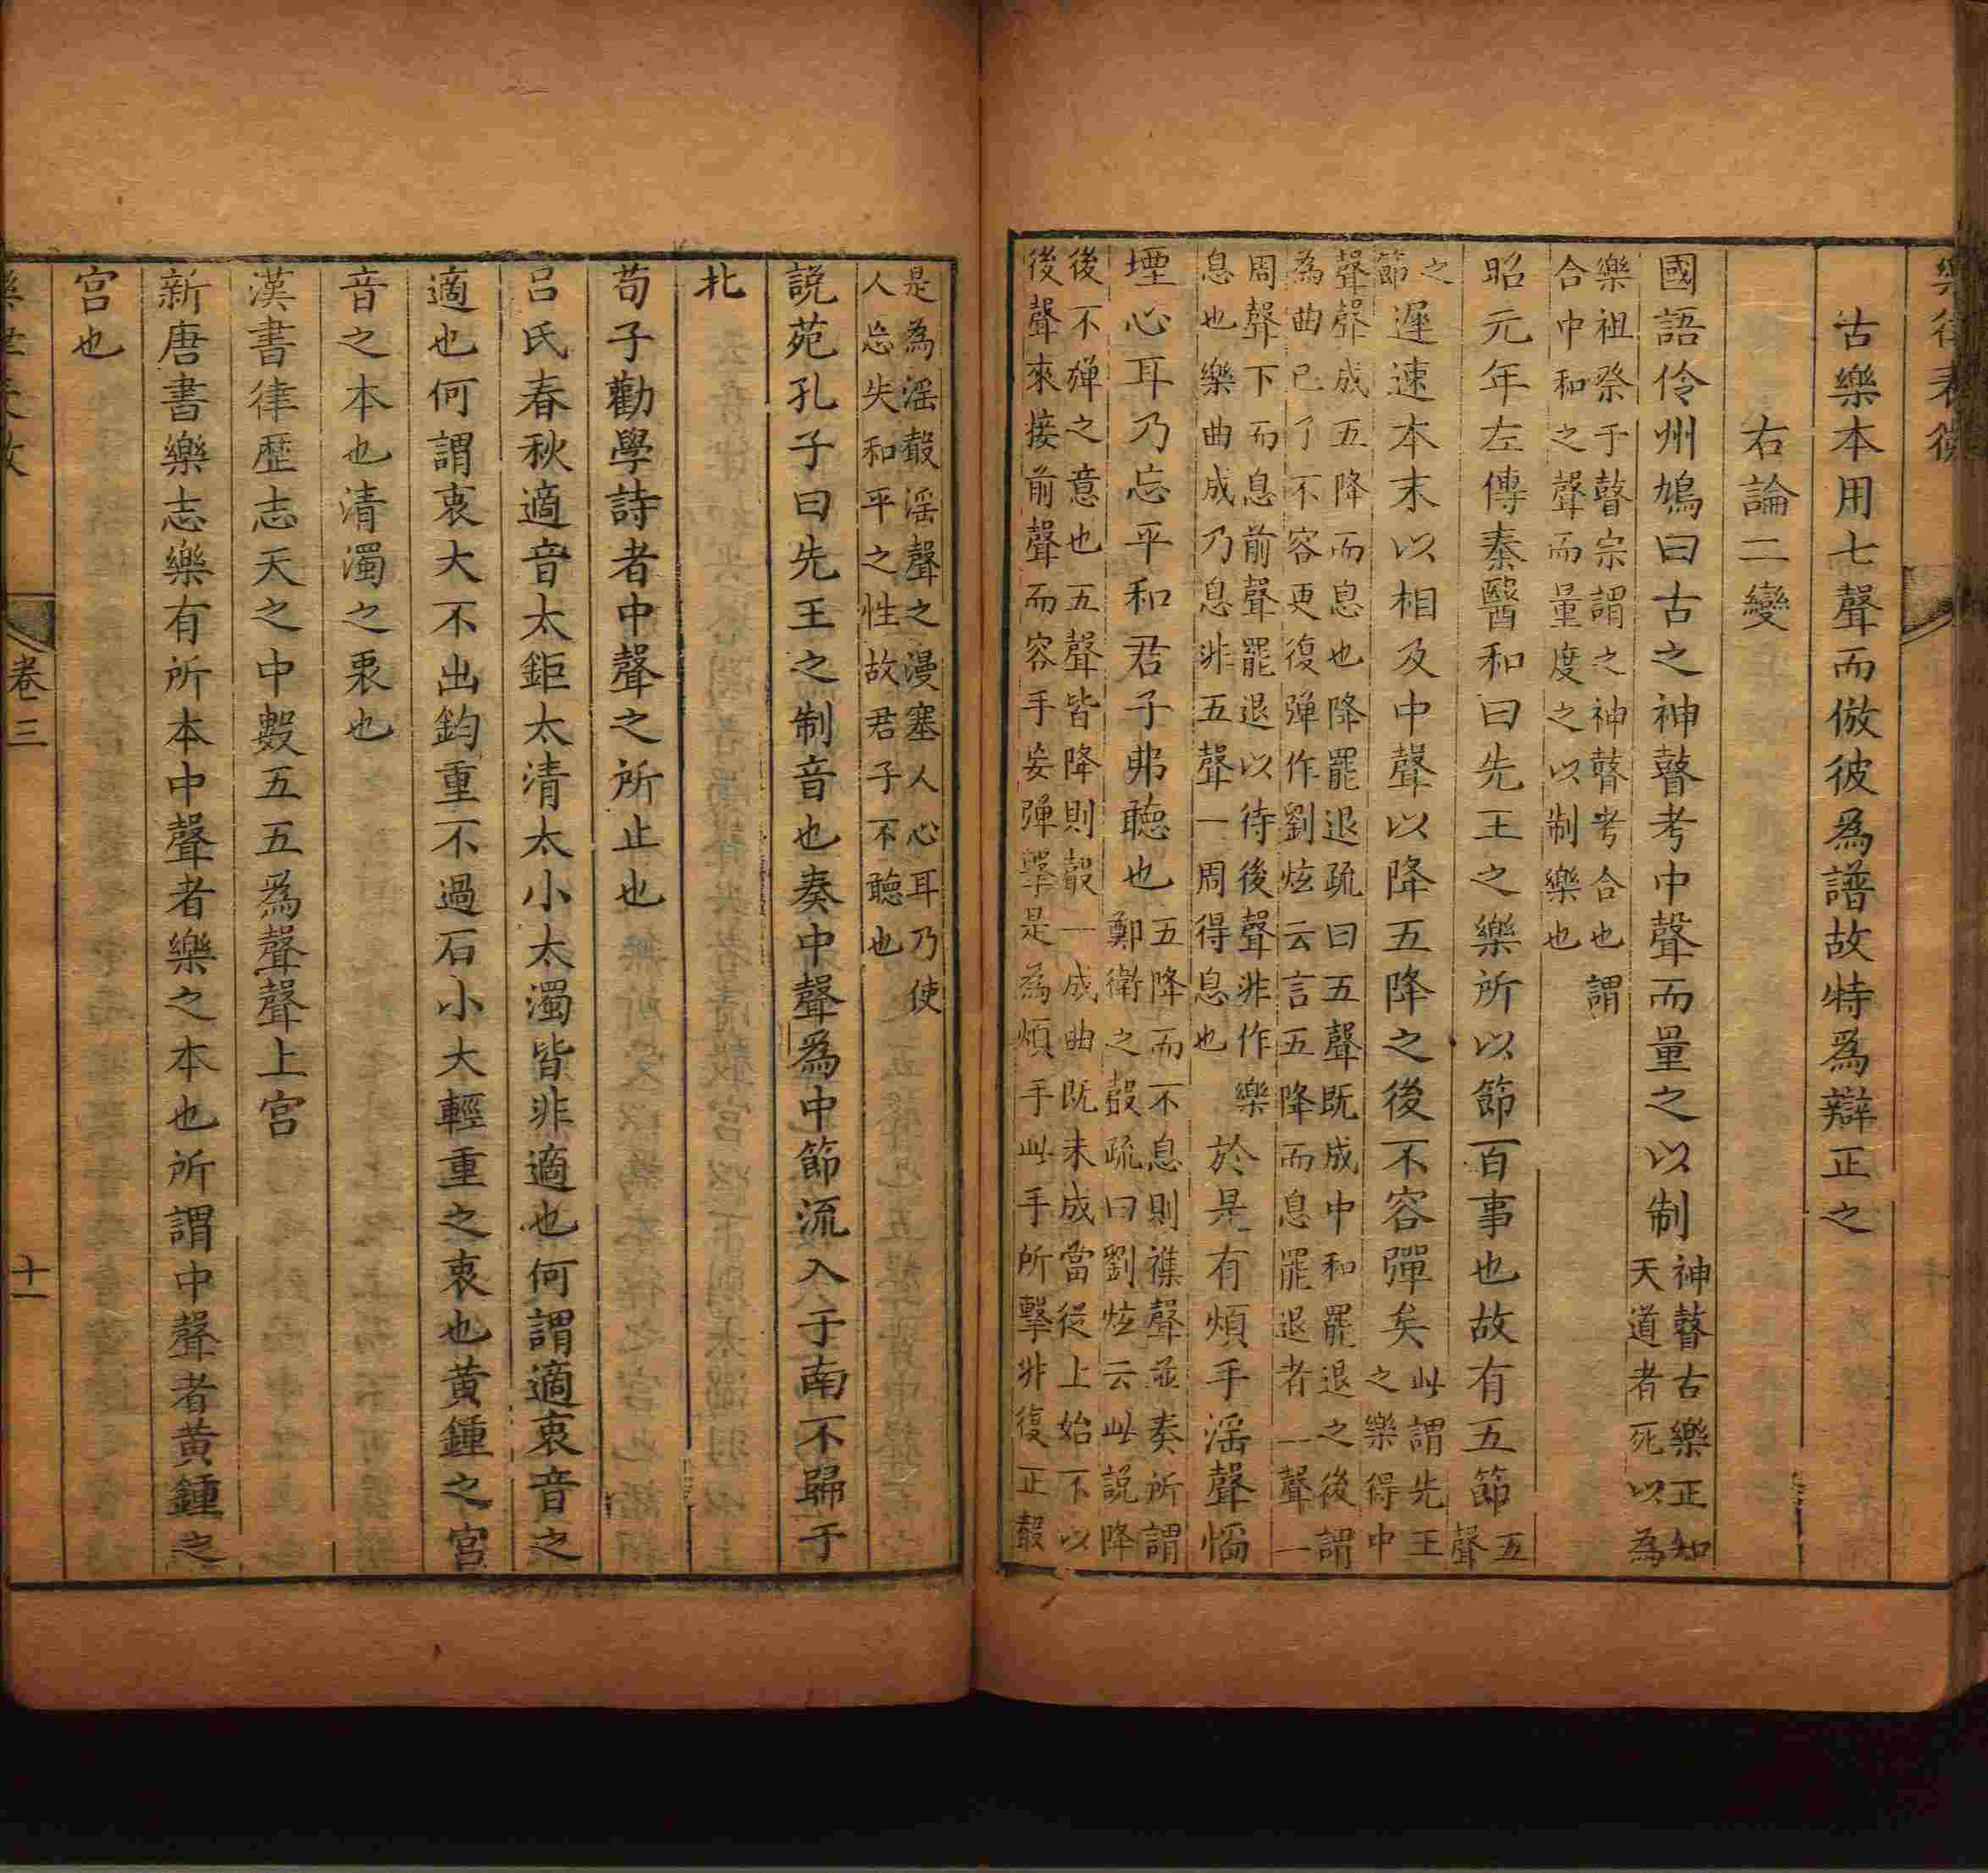 樂律表微
古樂本用七聲而倣彼爲譜故特爲辯正之
右論二變
國語伶州鳩曰古之神瞽考中聲而量之以制
神瞽古樂正知
天道者死以為
樂祖祭于瞽宗謂之神瞽考合也謂
合中和之聲而量度之以制樂也
昭元年左傳秦醫和曰先王之樂所以節百事也故有五節
五
聲
之
節
遲速本末以相及中聲以降五降之後不容彈矣
此謂先王
之樂得中
聲聲成五降而息也降罷退疏曰五聲既成中和罷退之後謂
為曲已了不容更復彈作劉炫云言五降而息罷退者一聲一
周聲下而息前聲罷退以待後聲非作樂
息也樂曲成乃息非五聲一周得息也
於是有煩手淫聲慆
堙心耳乃忘平和君子弗聽也
五降而不息則襍聲並奏所謂
鄭衛之聲疏曰劉炫云此說降
後不彈之意也五聲皆降則聲一成曲既未成當從上始不以
後聲來接前聲而容手妄彈擊是為煩手此手所擊非復正聲
是為淫聲淫聲之漫塞人心耳乃使
人忘失和平之性故君子不聽也
說苑孔子曰先王之制音也奏中聲爲中節流入于南不歸于
北
荀子勸學詩者中聲之所止也
呂氏春秋適音太鉅太清太小太濁皆非適也何謂適衷音之
適也何謂衷大不出鈞重不過石小大輕重之衷也黃鍾之宮
音之本也清濁之衷也
漢書律歷志天之中數五五爲聲聲上宮
新唐書樂志樂有所本中聲者樂之本也所謂中聲者黃鍾之
宮也
卷三
十一